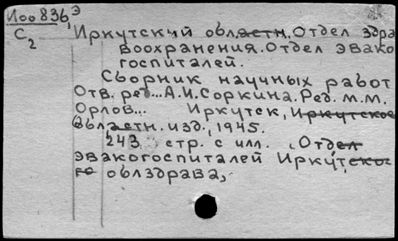 Иоо836э
C2
Иркутский областн. Отдел здра
воохранения. Отдел эвако
госпиталей.
Сборник научных работ
Отв. ред... А.И. Соркина. Ред. М.М.
Орлов... Иркутск, Иркутское
областн. изд., 1945.
243 стр. с илл. (Отдел
эвакогоспиталей Иркутско
го облздрава,